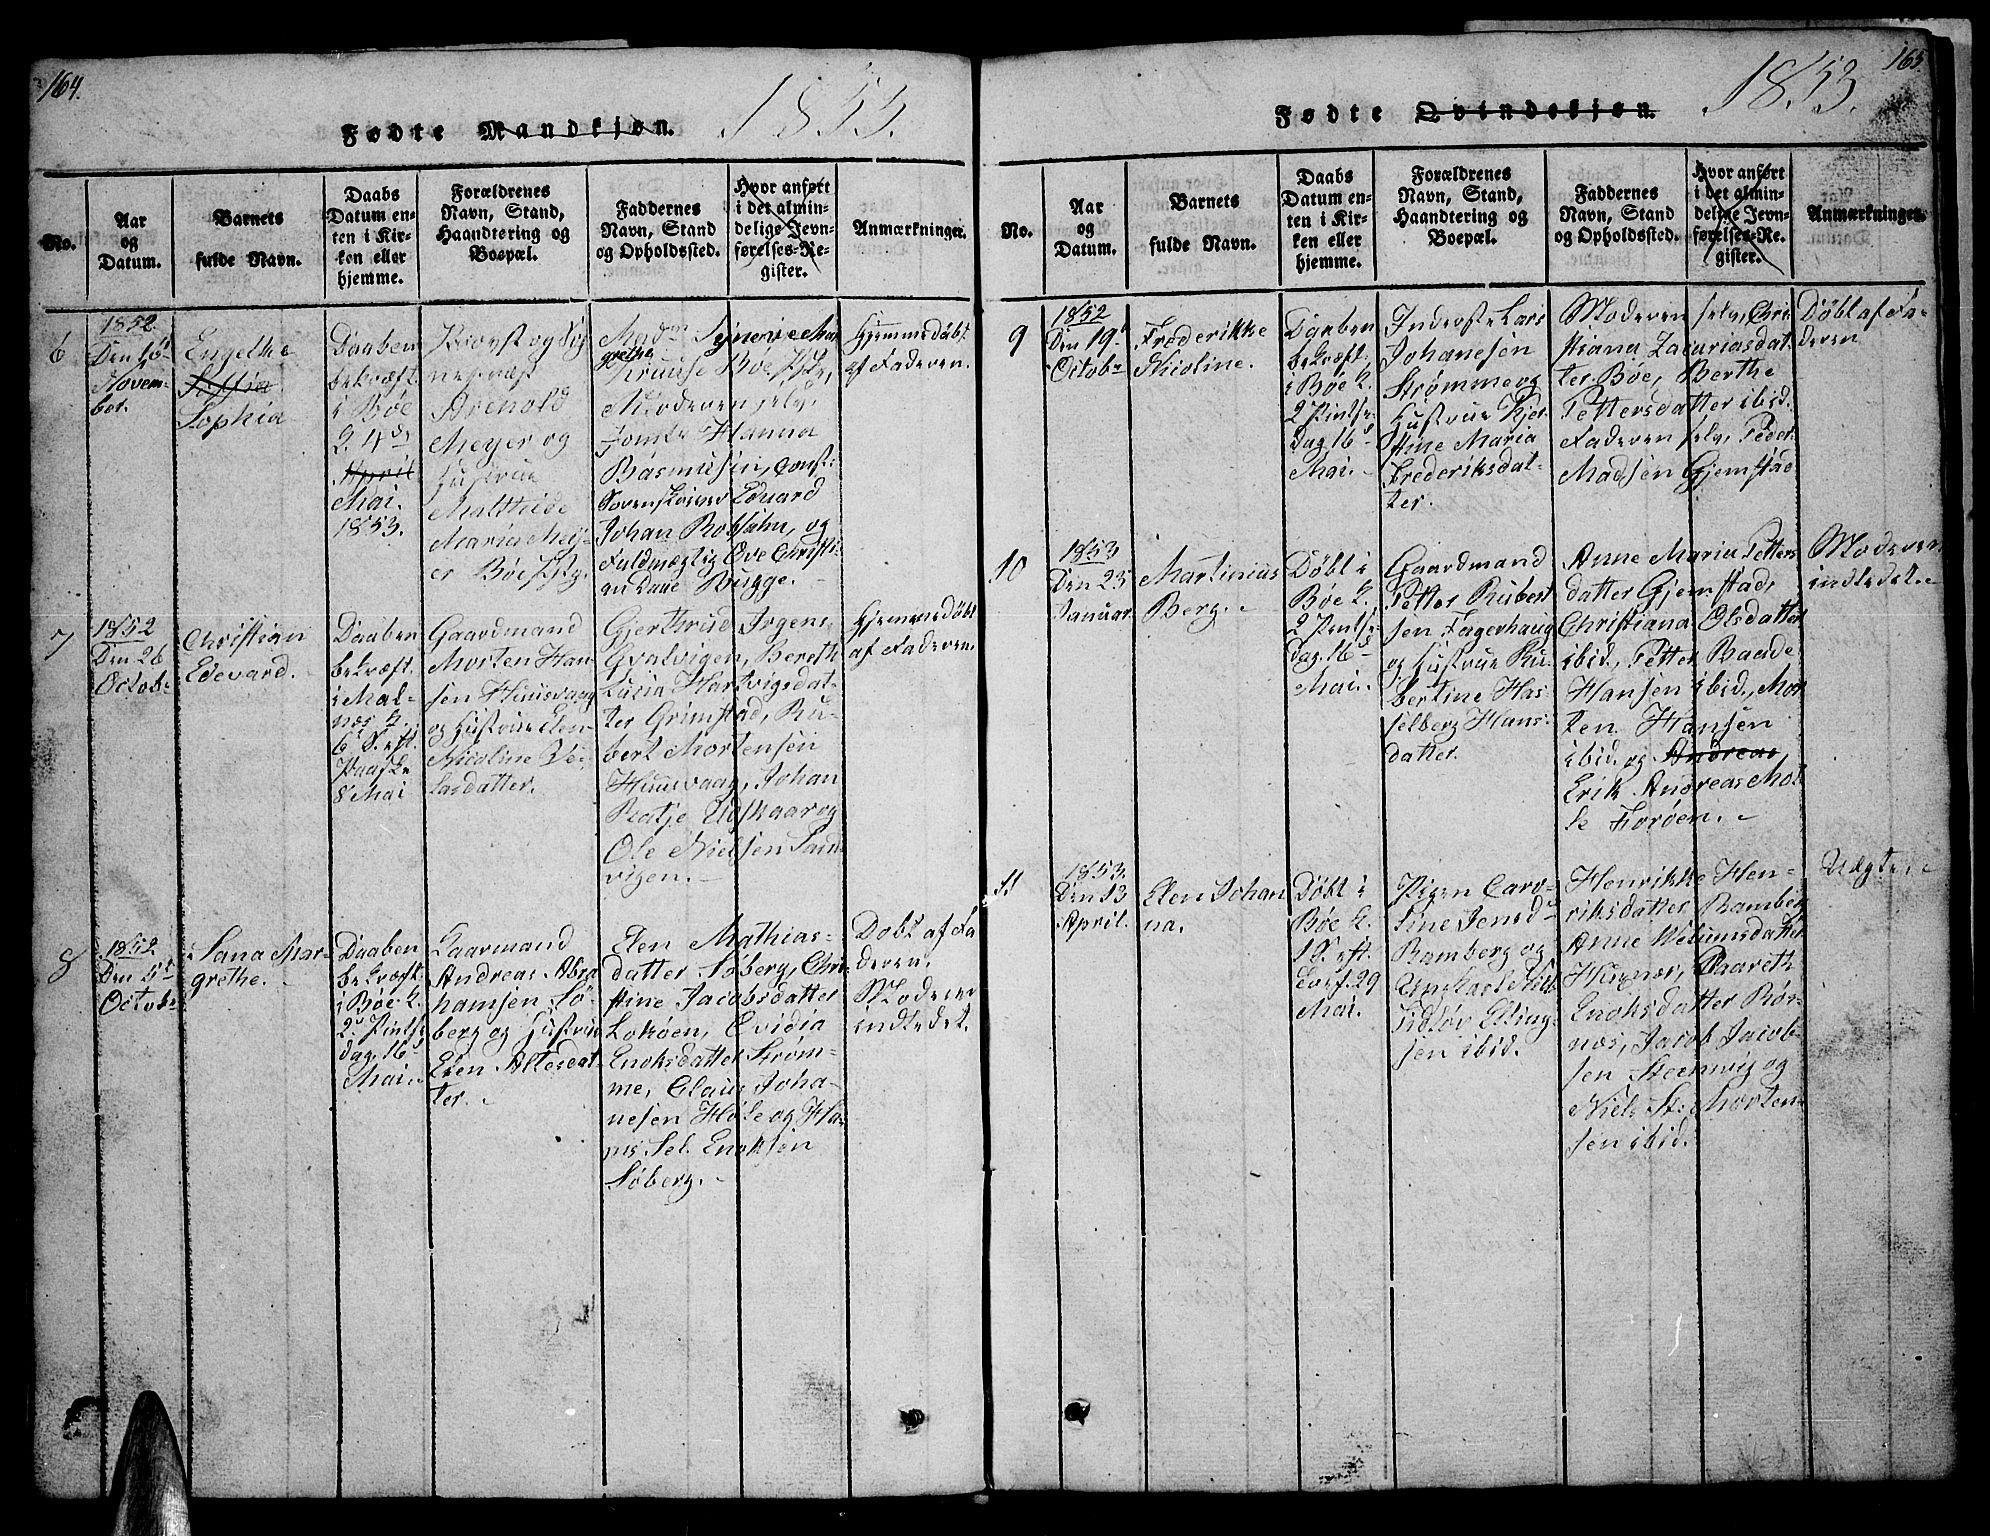 164.
1853.
Fødte Mandkjøn.
No.
Aar
og
Datum.
Barnets
fulde Navn.
Daabs
Datum en-
ten i Kir-
ken eller
hjemme.
Forældrenes
Navn, Stand,
Haandtering og
Boepæl.
Faddernes
Navn, Stand
og Opholdssted.
Hvor anført
i det almin-
delige Jevn-
førelses-Re-
gister.
Anmærkninger.
6
1852
Novem-
ber.
Engelke
Sophia
Daaben
bekræft.
i Bøe
K. 4de
April
Mai.
1853.
Arenold
Meyer og
Hustrue
Malthide
Maria Mey-
er Bøe
Kruuse Bøe
Moderen selv,
Jomfr Hanna
Rasmusen, Const.
Sorenskriver Eduard
Johan
Fuldmægtig Ove Christi-
an Daae Bugge.
Hjemmedøbt
af Faderen
7
1852
Den 26
Octobr
Christian
Edevard.
Daaben
bekræft.
i Mal-
næs K.
6 S. eft.
Paaske
8 Mai
Gaardmand
Morten Han-
sen Huusvaag
og Hustrue Elen
Nicoline
Gjerthrud Irgens
Qvalvigen, Bereth
Lucia Hartvigsdat-
ter Grimstad, Ru-
bert Mortensen
Huusvaag, Johan
Ole Nielsen Sand
vigen.
Hjemmedøbt
af Faderen.
8
1852
Den 5t
Octobr
Sana Mar-
grethe.
Daaben
bekræft.
i Bøe K.
2 Pintse-
dag 16d
Mai.
Gaarmand
Andreas Abra
hamsen Sø-
berg og Hustrue
Elen
ter.
Elen Mathias-
datter Søberg, Chri-
stine Jacobsdatter
Enoksdatter Strøm-
me, Claus Joha-
nesen
Enoksen
Søberg.
Døbt af Fa
deren.
Moderen
indledet.
165.
1853.
Fødte Qvindekjøn.
No.
Aar
og
Datum.
Barnets
fulde Navn.
Daabs
Datum en-
ten i Kir-
ken eller
hjemme.
Forældrenes
Navn, Stand,
Haandtering og
Boepæl.
Faddernes
Navn, Stand
og Opholdssted.
Hvor anført
i det almin-
delige Jevn-
førelses-Re-
gister.
Anmærkninger.
9
1852
Den 19
Octobr
Frederikke
Nicoline.
Daaben
bekræft.
i Bøe K.
2 Pintse-
dag 16d
Mai.
Inderst Lars
Johanesen
Strømme og
Hustrue Kjer-
stine Maria
Frederiksdat-
ter.
Moderen selv, Chri
stiana Zacariasdat-
ter Bøe, Berthe
Pettersdatter ibid.
Faderen selv, Peder
Madsen Gjemstad
Døbt af Fa-
deren
10
1853
Den 25
Januar
Martinius
Berg.
Døbt i
Bøe K.
2 Pintse-
dag 16d
Mai.
Gaardmand
Petter Rubert
sen Fagerhaug
og Hustrue Ru-
bertine Has
selberg Hans-
datter.
Anne Maria Petters
datter Gjemstad,
Christiana Olsdatter
ibid, Petter Baade
Hansen ibid, Mor
ten Hansen
ibid. og Andreas
Erik Andreas Mol
Forøen.
Moderen
indledet.
11
1853.
Den 13
April.
Elen Johan
na.
Døbt i
Bøe K.
1 S. eft.
29
Mai.
Pigen Carv-
line Jensd
Bamberg og
Elling-
sen ibid.
Henrikke Hen-
riksdatter Bamberg
Anne
Enoksdatter Rør-
næs, Jacob Jacob-
sen Steenvig og
Niels St. Morten-
sen ibid.
Uægte